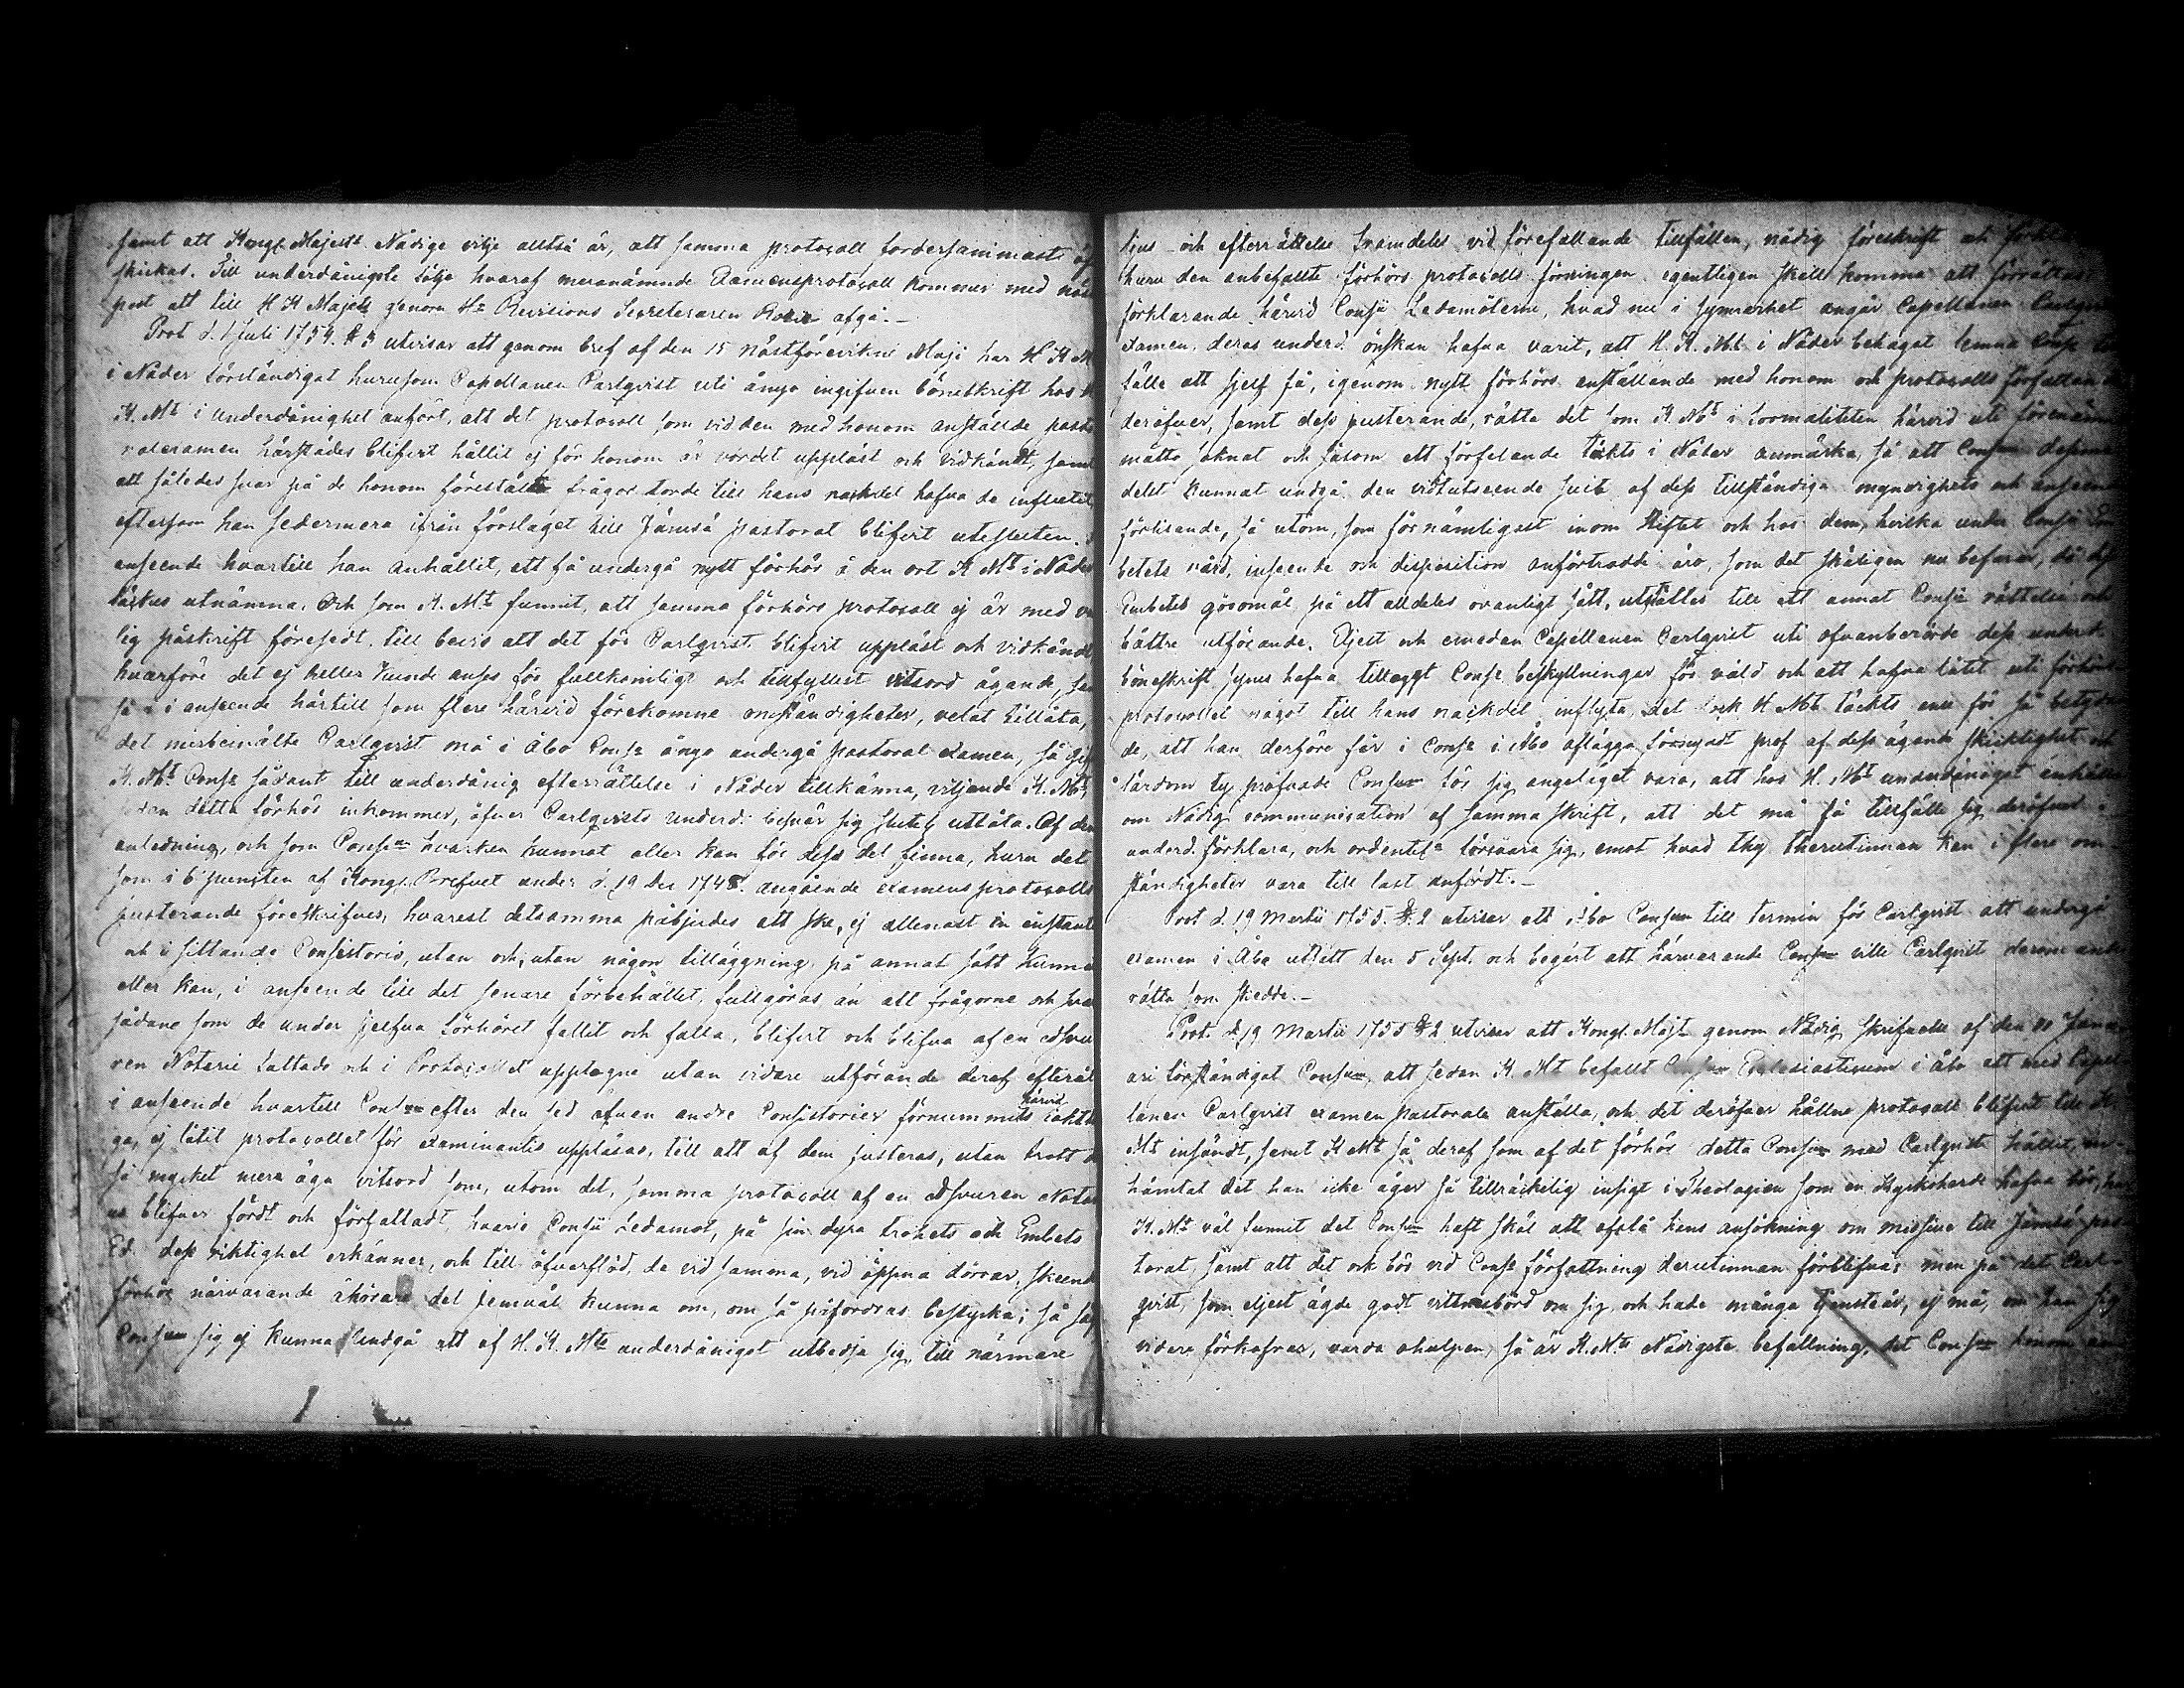 samt att Kongl. Majests Nådige vilje alltså är, att samma protocoll fordersammast
skickas. Till underdånigste följe hvaraf meranämnde Examensprotocoll kommer med
post att till H K Majest genom Hr Revisions Secreteraren afgå.—
Prot d. 1 Juli 1754 § 3 utvisar att genom bref af den 15 nästförevikne Maji har H K M
i Nåder förständigat hurusom Capellanen Carlqvist uti ånyo ingifven böneskrift hos
K. Mt i underdånighet anfört, att det protocoll som vid den med honom anstälde pasto
ralexamen härstädes blifvit hållit ej för honom är vordet uppläst och vidkändt, samt
att således svar på de honom förestälte frågor torde till hans nackdel hafva de influtit
eftersom han sedermera ifrån förslaget till Jämsä pastorat blifvit utesluten.
anseende hvartill han anhållit, att få undergå nytt förhör å den ort K Mt i Nåder
täckes utnämna. Och som K. Mt funnit, att samma förhörs protocoll ej är med
lig påskrift försedt, till bevis att det för Carlqvist blifvit uppläst och vidkändt
hvarföre det ej heller kunde anses för fullkomligt och tillfyllest vitsord ägande,
så i anseende härtill som flere härvid förekomne omständigheter, velat tillåta,
det merbemälte Carlqvist må i Åbo Cons: ånyo undergå pastoral examen, så
K. Mt Cons: sådant till underdånig efterrättelse i Nåder tillkänna, viljande K. Mt,
sedan detta förhör inkommer, öfver Carlqvists underd: besvär sig slutel. utlåta. Af den
anledning, och som Consum hvarken kunnat eller kan för dess del finna, huru det
som i 6 puncten af Kongl. Brefvet under d. 19 Dec 1748. angående examens protocolls
justerande föreskrifves, hvarest detsamma påbjudes att ske, ej allenast in instanti
ut i sittande Consistorio, utan och, utan någon tilläggning på annat sätt kunnat
eller kan, i anseende till det senare förbehållet, fullgöras än att frågorne och svar
sådane som de under sjelfva förhöret fallit och falla, blifvit och blifva af en edsvu
ren Notarie fattade och i Protocollet upptagne utan vidare utförande deraf efteråt
i anseende hvartill Consum efter den sed äfven andre Consistorier förnummits härvid iaktta
ga, ej låtit protocollet för examinantis uppläsas, till att af dem justeras, utan trott
så mycket mera äga vitsord som, utom det, samma protocoll af en edsvuren Nota
rie blifver fördt och författadt, hvarje Consii Ledamot, på sin dyra trohets och Embets
Ed dess riktighet erkänner, och till öfverflöd, de vid samma, vid öppna dörrar, skeende
förhör närvarande åhörare det jemväl kunna om, om så påfordras bestyrka; så
Consum sig ej kunna undgå att af H. K. Mt underdånigst utbedja sig, till närmare
ljus och efterrättelse framdeles vid förefallande tillfällen, nådig föreskrift och
huru den anbefallte förhörs protocolls förningen egentligen skall komma att förrättas
förklarande härvid Consii Ledamöterne, hvad nu i synnerhet angår Capellanen
examen, deras underd. önskan hafva varit, att H. K. Mt. i Nåder behagat lemna Cons:
fälle att sjelf få, igenom nytt förhörs anställande med honom och protocolls författan
deröfver, samt dess justerande, rätta det som K Mt i formaliteten härvid uti
måtto saknat och såsom ett förfelande täckts i Nåder anmärka, så att Consum
delst kunnat undgå den vidtutseende svit af dess tillständiga myndighets och anseende
förlisande, så utom, som förnämligast inom Stiftet och hos dem, hvilka under Consii
betets vård, inseende och disposition anförtrodde äro, som det skäligen nu befarar, då
Embetes göromål på ett alldeles ovanligt sätt, utställes till ett annat Consii rättelse och
bättre utförande. Ejest och emedan Capellanen Carlqvist uti ofvanberörde dess underd.
böneskrift synes hafva tillaggt Cons: beskyllningar för våld och att hafva låtit uti förhörs
protocollet något till hans nackdel inflyta, det K Mt täckts ens för så betyd
de, att han derföre får i Cons: i Åbo aflägga förnyadt prof af dess ägande skicklighet och
lärdom ty pröfvade Consum för sig angeläget vara, att hos K. Mt underdånigst anhålla
om Nådig communication af samma skrift, att det må få tillfälle sig deröfver
underd. förklara, och ordentel. försvara sig, emot hvad thy therutinnan kan i flere om
ständigheter vara till last anfördt.—
Prot d. 19 Martii 1755. §. 2 utvisar att Åbo Consum till termin för Carlqvist att undergå
examen i Åbo utsatt den 5 Sept. och begärt att härvarande Consum ville Carlqvist derom
rätta som skedde.—
Prot. d 19 Martii 1755 § 2 utvisar att Kongl. Majt genom Nådig skrifvelse af den Janu
ari förständigat Consum, att sedan K. Mt befallt Consum Ecclesiasticum i Åbo att med Capel
lanen Carlqvist examen pastorale anställa, och det deröfver hållne protocoll blifvit till K
Mt insändt, samt K Mt så deraf som af det förhör detta Consum med Carlqvist hållit,
hämtat det han icke äger så tillräckelig insigt i Theologien som en Kyrkoherde hafva bör,
K. Mt väl funnit det Consum haft skäl att afslå hans ansökning om missive till Jämsä pas
torat, samt att det ock bör vid Cons: författning derutinnan förblifva; men på det Carl
qvist, som eljest ägde godt vittnesbörd om sig, och hade många tjensteår, ej må, om han sig
vidare förkofrar, varda ohulpen, så är K. Mts Nådigste befallning, det Consum honom